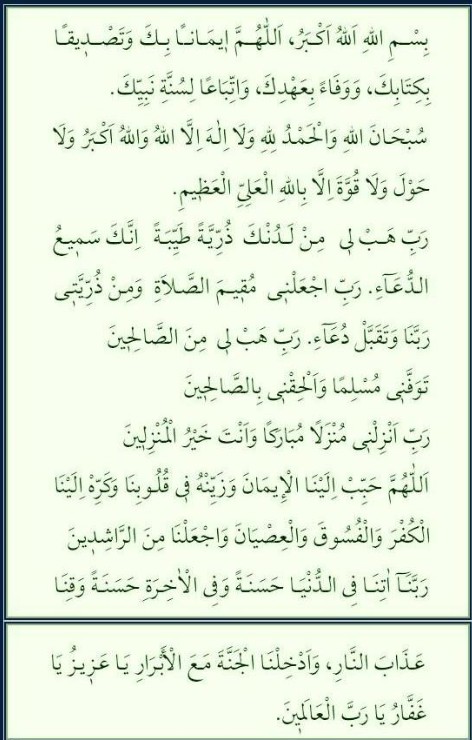 بِسْمِ اللهِ اَللهُ اَكْبَرُ، اَللّٰهُمَّ اِيمَانًا بِكَ وَتَصْدِيقًا
بِكِتَابِكَ، وَوَفَاءً بِعَهْدِكَ، وَاتِّبَاعًا لِسُنَّةِ نَبِيِّكَ.
سُبْحَانَ اللهِ وَالْحَمْدُ لِلهِ وَلَا اِلٰهَ اِلَّا اللهُ وَاللهُ اَكْبَرُ وَلَا
حَوْلَ وَلَا قُوَّةَ اِلَّا بِاللهِ الْعَلِيِّ الْعَظِيمِ.
رَبِّ هَبْ لِي مِنْ لَدُنْكَ ذُرِّيَّةً طَيِّبَةً اِنَّكَ سَمِيعُ
الدُّعَٓاءِ. رَبِّ اجْعَلْنِى مُقِيمَ الصَّلَاةِ وَمِنْ ذُرِّيَّتِى
رَبَّنَا وَتَقَبَّلْ دُعَٓاءِ. رَبِّ هَبْ لِي مِنَ الصَّالِحِينَ
تَوَفَّنِى مُسْلِمًا وَاَلْحِقْنِى بِالصَّالِحِينَ
رَبِّ اَنْزِلْنِى مُنْزَلًا مُبَارَكًا وَاَنْتَ خَيْرُ الْمُنْزِلِينَ
اَللّٰهُمَّ حَبِّبْ اِلَيْنَا الْإِيمَانَ وَزَيِّنْهُ فِي قُلُوبِنَا وَكَرِّهْ اِلَيْنَا
الْكُفْرَ وَالْفُسُوقَ وَالْعِصْيَانَ وَاجْعَلْنَا مِنَ الرَّاشِدِينَ
رَبَّنَٓا اٰتِنَا فِى الدُّنْيَا حَسَنَةً وَفِى الْاٰخِرَةِ حَسَنَةً وَقِنَا
عَذَابَ النَّارِ، وَاَدْخِلْنَا الْجَنَّةَ مَعَ الْأَبْرَارِ يَا عَزِيزُ يَا
غَفَّارُ يَا رَبَّ الْعَالَمِينَ.